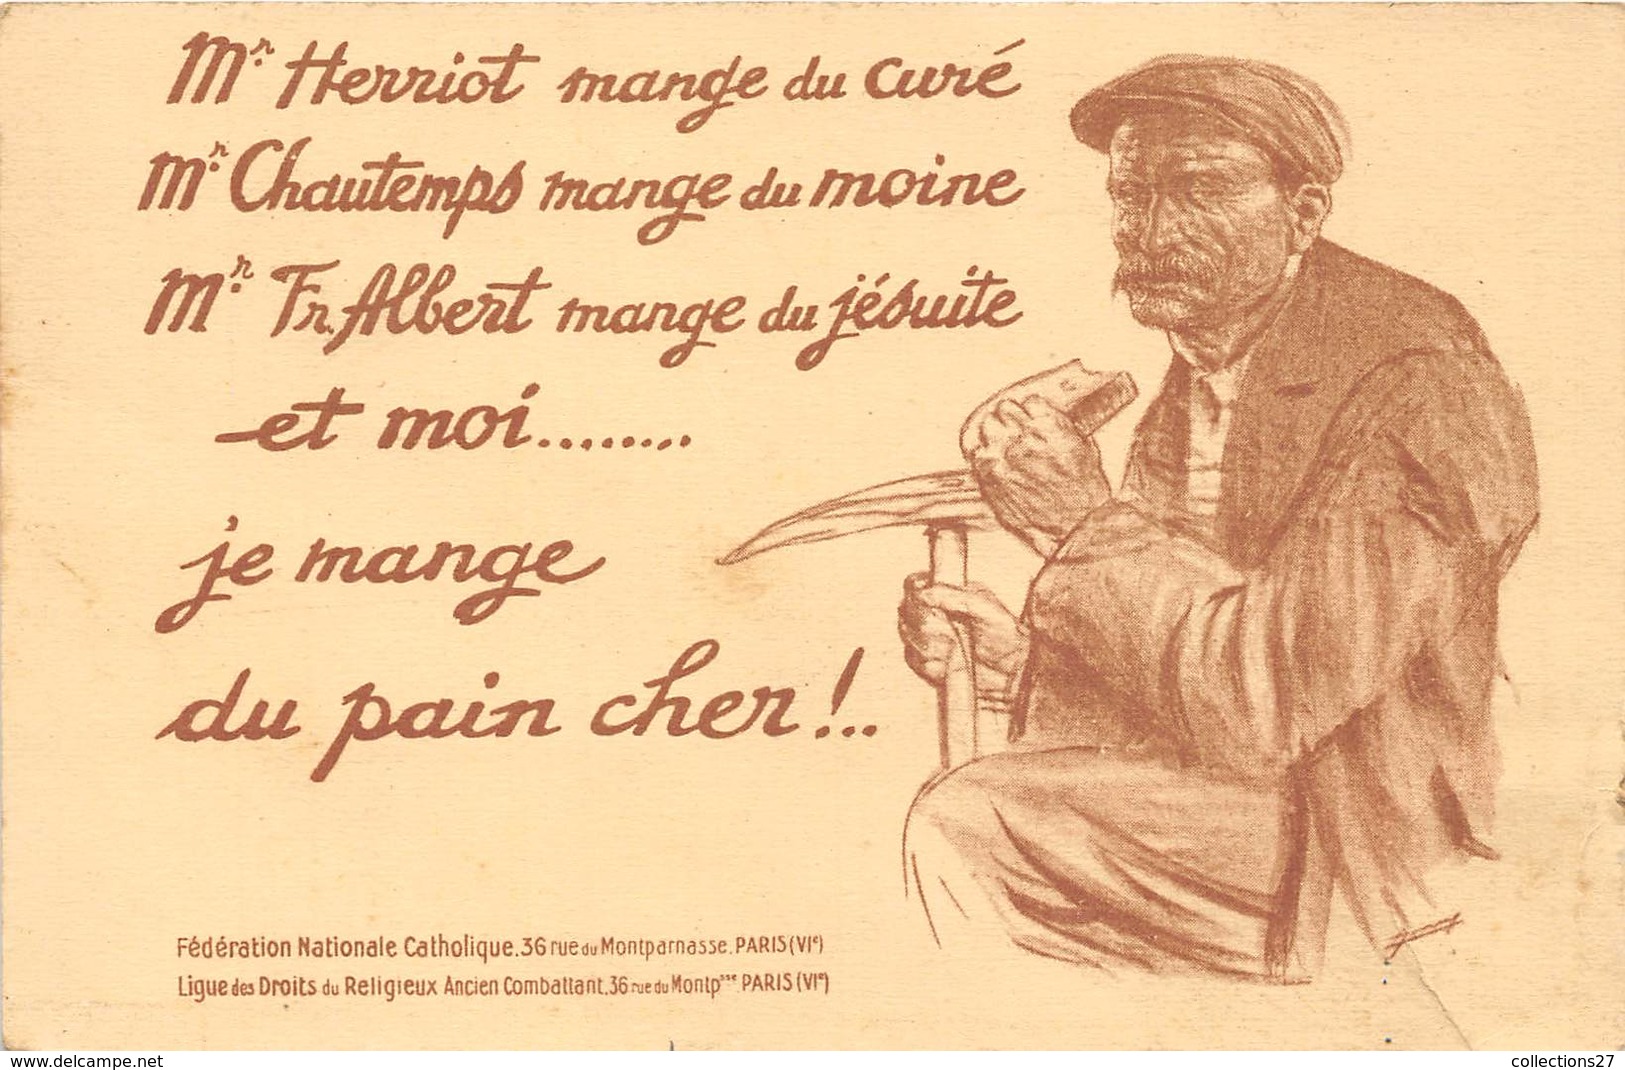 Mr Herriot mange du curé
Mr Chautemps mange du moine
Mr Fr. Albert mange du jésuite
et moi........
je mange
du pain cher!..
Fédération Nationale Catholique. 36 rue du Montparnasse. PARIS (VIe)
Ligue des Droits du Religieux Ancien Combattant. 36 rue du Montpsse PARIS (VIe)
www.delcampe.net
collections27